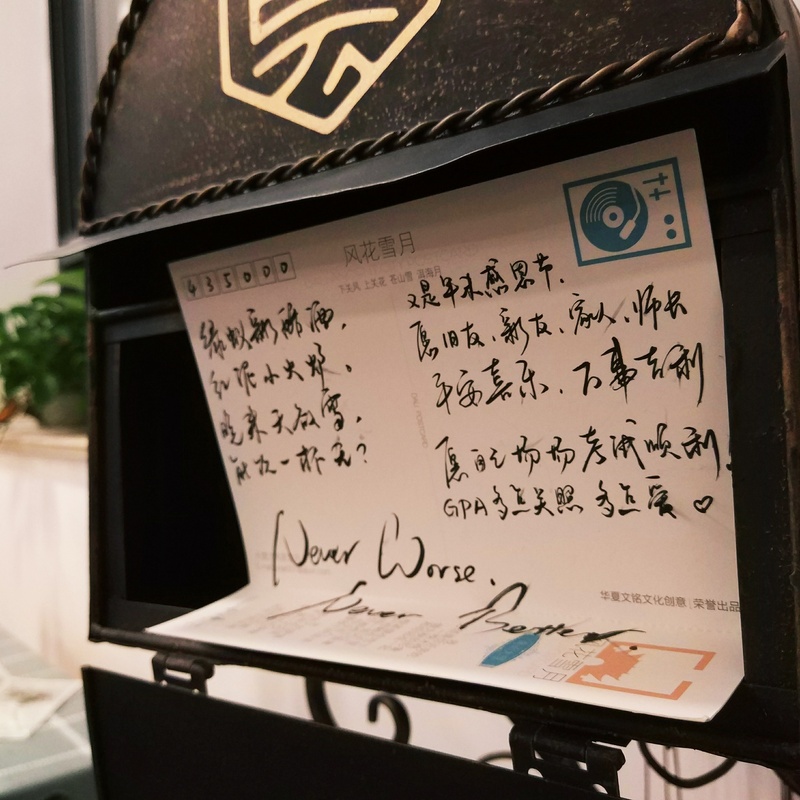 435000
风花雪月
下关风 上关花 苍山雪 洱海月
绿蚁新醅酒,
红泥小火炉。
晚来天欲雪,
能饮一杯无?
又是一年末感恩节,
愿旧友、新友、家人、师长
平安喜乐,万事吉利
愿自己场场考试顺利,
GPA多点关照 多点爱♡
Never Worse.
Never Better.
华夏文铭文化创意 | 荣誉出品